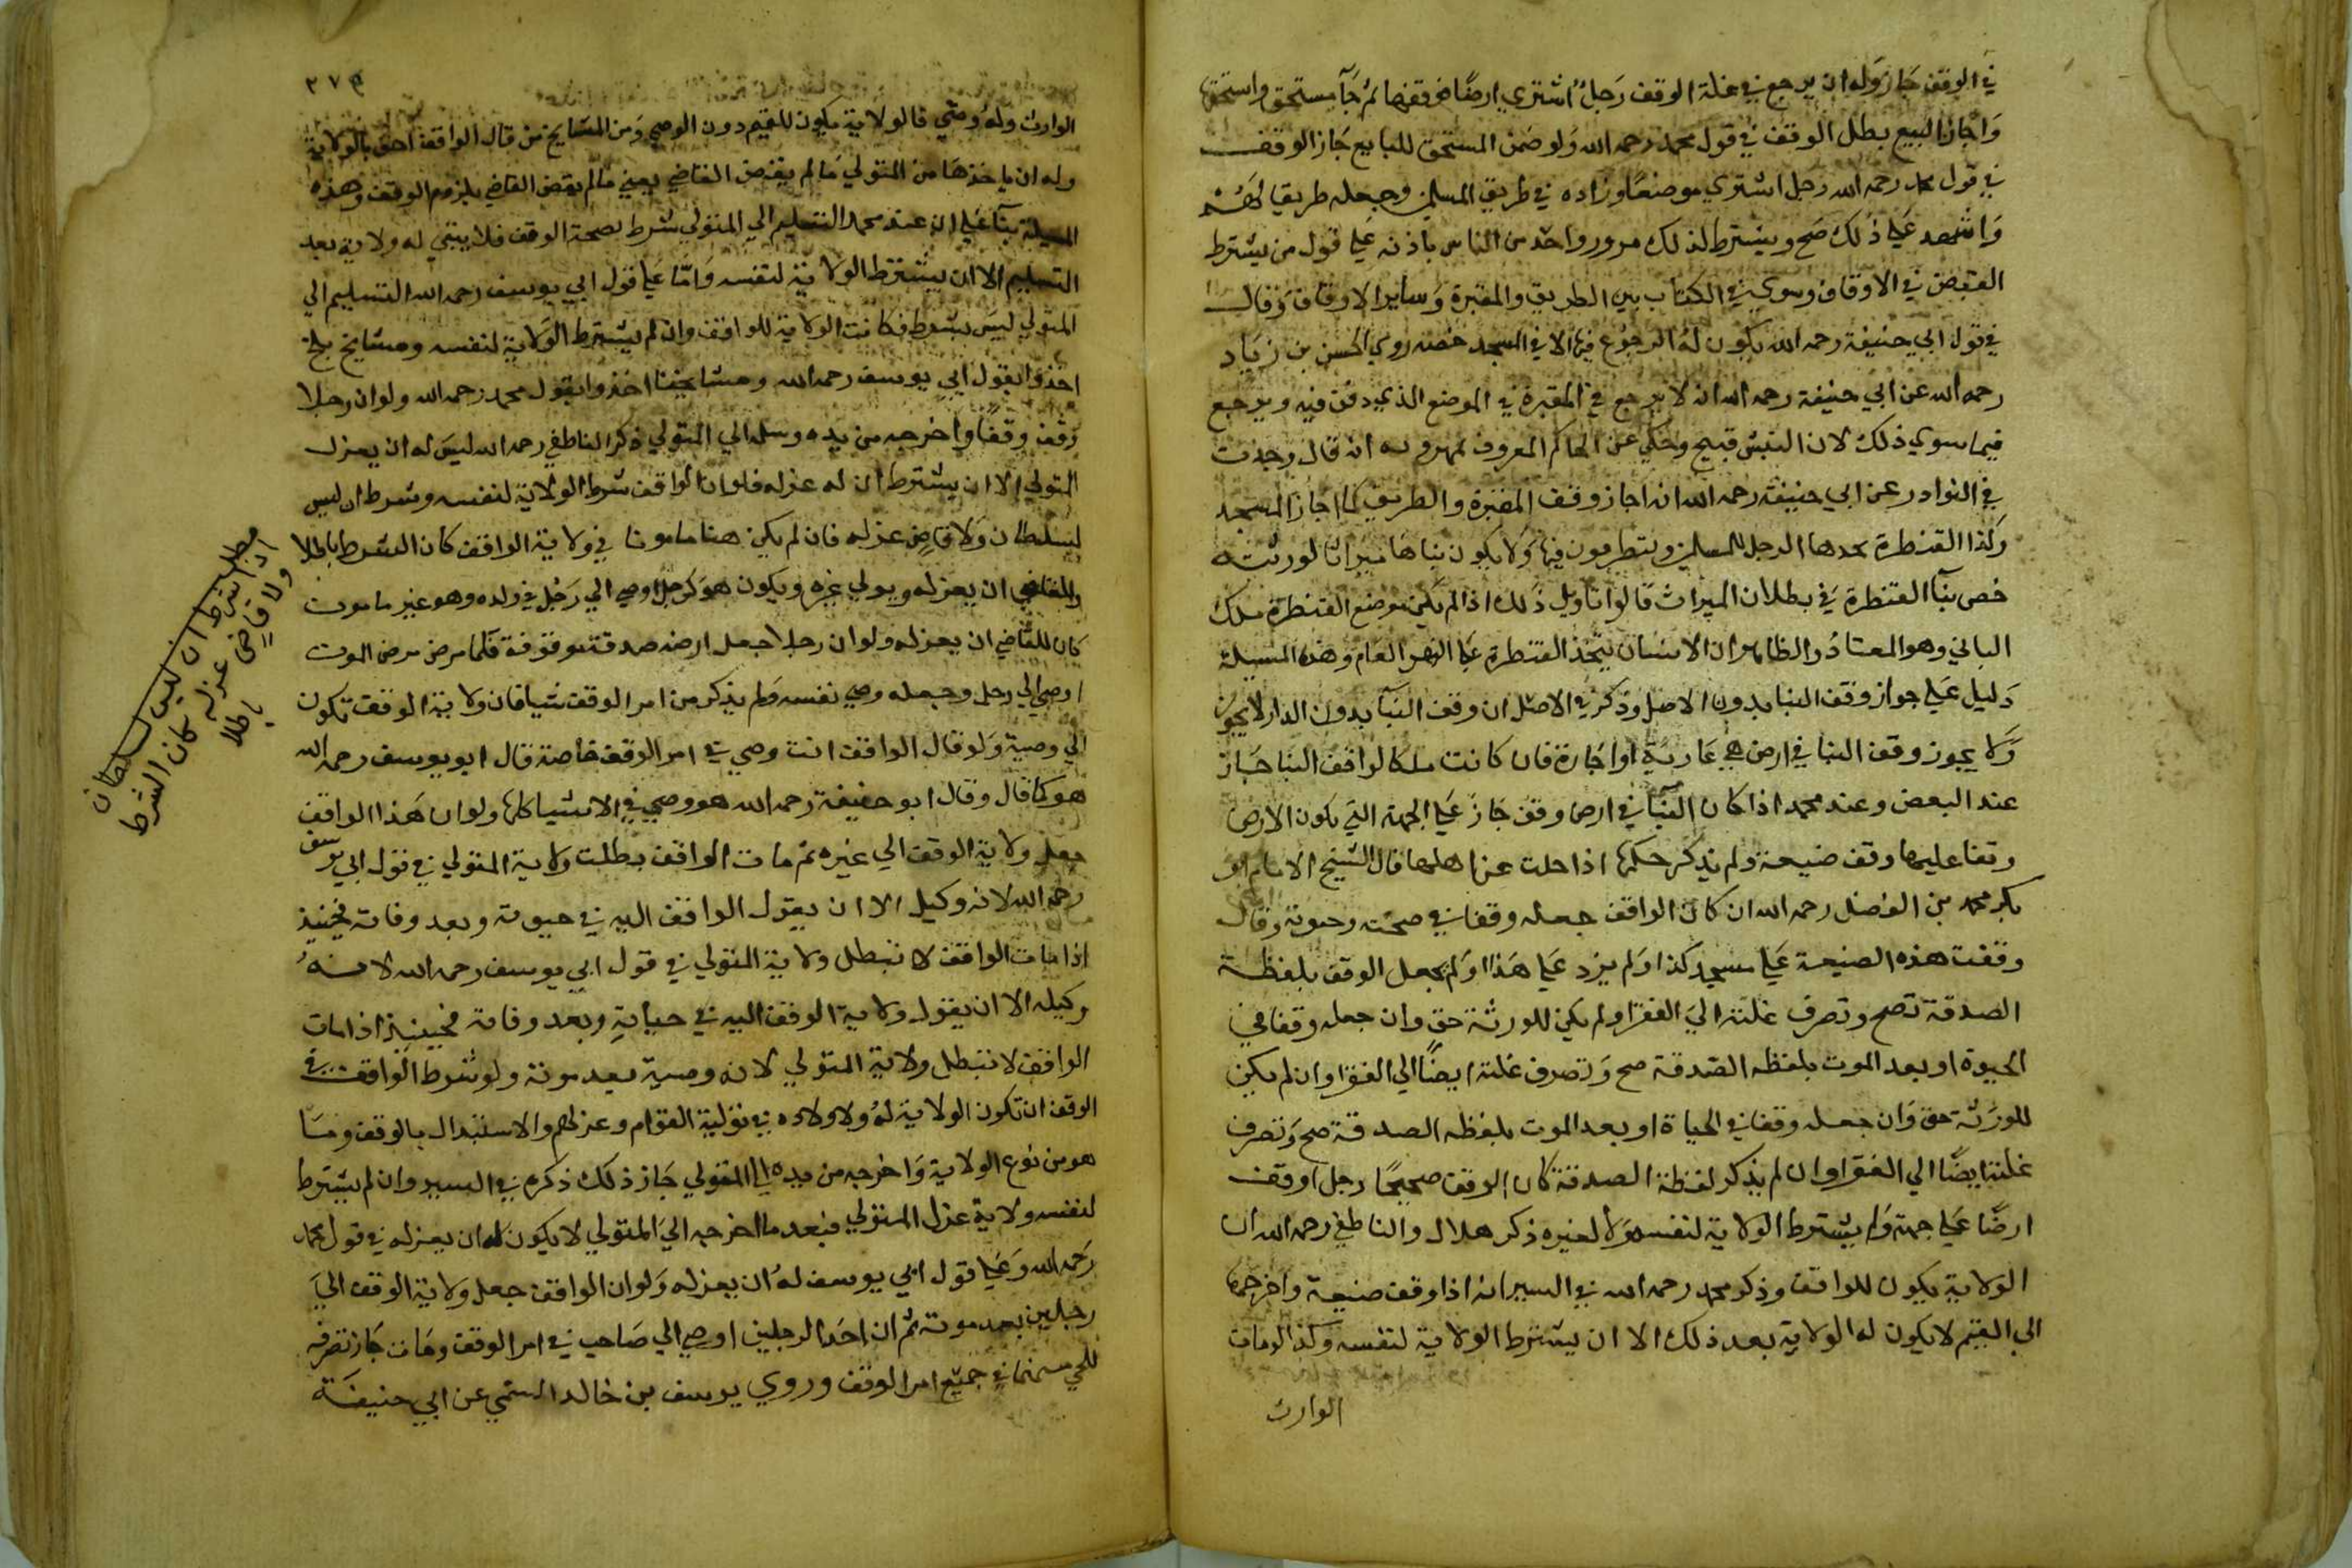 في الوقف جاز وله ان يرجع في غلة الوقف رجل اشتري ارضا فوقفها ثم جآ مستحق واستحقها
واجاز البيع بطل الوقف في قول محمد رحمه الله ولو ضمن المستحق للبايع جاز الوقف
في قول محمد رحمه الله رجل اشتري موضعا وزاده في طريق المسلمين وجعله طريقا لهم
واشهد علي ذلك صح ويشترط لذلك مرور واحد من الناس باذنه علي قول من يشترط
القبض في الاوقاف وسوي في الكتاب بين الطريق والمقبرة وساير الاوقاف وقال
في قول ابي حنيفة رحمه الله يكون له الرجوع فيها الا في المسجد خصه روي الحسن بن زياد
رحمه الله عن ابي حنيفة رحمه الله انه لا يرجع في المقبرة في الموضع الذي دفن فيه ويرجع
فيما سوي ذلك لان النبش قبيح وحكي عن الحاكم المعروف بمهرويه انه قال وجدت
في النوادر عن ابي حنيفة رحمه الله انه اجاز وقف المقبرة والطريق كما اجاز المسجد
وكذا القنطرة يتخذها الرجل للمسلمين ويتطرقون فيها ولا يكون بناها ميراثا لورثته
خص بنآ القنطرة في بطلان الميراث قالوا تاويل ذلك اذا لم يكن موضع القنطرة ملك
الباني وهو المعتاد والظاهر ان الانسان يتخذ القنطرة علي النهر العام وهذه المسيلة
دليل علي جواز وقف البنا بدون الاصل وذكر في الاصل ان وقف البنآ بدون الدار لا يجوز
ولا يجوز وقف البنا في ارض هي عارية او اجارة فان كانت ملكا لواقف البنا جاز
عند البعض وعند محمد اذا كان البنآ في ارض وقف جاز علي الجهة التي يكون الارض
وقفا عليها وقف ضيعة ولم يذكر حكمها اذا خلت عن اهلها قال الشيخ الامام ابو
بكر محمد بن الفضل رحمه الله ان كان الواقف جعله وقفا في صحته وحيوته وقال
وقفت هذه الضيعة علي مسجد كذا ولم يزد علي هذا ولم يجعل الوقف بلفظة
الصدقة تصح وتصرف غلته الي الفقرا ولم يكن للورثة حق وان جعله وقفا في
الحيوة او بعد الموت بلفظه الصدقة صح وتصرف غلته ايضا الي الفقرا وان لم يكن
للورثة حق وان جعله وقفا في الحياة او بعد الموت بلفظه الصدقة صح وتصرف
غلته ايضا الي الفقرا وان لم يذكر لفظة الصدقة كان الوقف صحيحا رجل اوقف
ارضا علي جهة ولم يشترط الولاية لنفسه ولا لغيره ذكر هلال والناطفي رحمه الله ان
الولاية يكون للواقف وذكر محمد رحمه الله في السير انه اذا وقف ضيعة واخرجها
الي القيم لا يكون له الولاية بعد ذلك الا ان يشترط الولاية لنفسه وكذا لو مات
الوارث
٢٧٩
الوارث وله وصي فالولاية يكون للقيم دون الوصي ومن المشايخ من قال الواقف احق بالولاية
وله ان ياخذها من المتولي ما لم يقض القاضي يعني ما لم يقض القاضي بلزوم الوقف وهذه
المسيلة بنآ علي ان عند محمد التسليم الي المتولي شرط لصحة الوقف فلا يبقي له ولاية بعد
التسليم الا ان يشترط الولاية لنفسه واما علي قول ابي يوسف رحمه الله التسليم الي
المتولي ليس بشرط فكانت الولاية للواقف وان لم يشترط الولاية لنفسه ومشايخ بلخ
اخذوا بقول ابي يوسف رحمه الله ومشايخنا اخذوا بقول محمد رحمه الله ولو ان رجلا
وقف وقفا واخرجه من يده وسلم الي المتولي ذكر الناطفي رحمه الله ليس له ان يعزل
المتولي الا ان يشترط ان له عزله فلو ان الواقف شرط الولاية لنفسه وشرط ان ليس
لسلطان ولا قاض عزله فان لم يكن هنا مامونا في ولاية الواقف كان الشرط باطلا
وللقاضي ان يعزله ويولي غيره ويكون هو كرجل اوصي الي رجل في ولده وهو غير مامون
كان للقاضي ان يعزله ولو ان رجلا جعل ارضه صدقة موقوفة فلما مرض مرض الموت
اوصي الي رجل وجعله وصي نفسه ولم يذكر من امر الوقف شيا فان ولاية الوقف تكون
الي وصية ولو قال الواقف انت وصي في امر الوقف خاصة قال ابو يوسف رحمه الله
هو كما قال وقال ابو حنيفة رحمه الله هو وصي في الاشيا كلها ولو ان هذا الواقف
جعل ولاية الوقف الي غيره ثم مات الواقف بطلت ولاية المتولي في قول ابي يوسف
رحمه الله لانه وكيل الا ان يقول الواقف اليه في حيوته وبعد وفاته فحينيذ
اذا مات الواقف لا تبطل ولاية المتولي في قول ابي يوسف رحمه الله لانه
وكيله الا ان يقول ولاية الوقف اليه في حياته وبعد وفاته فحينيذ اذا مات
الواقف لا تبطل ولاية المتولي لانه وصية بعد موته ولو شرط الواقف في
الوقف ان تكون الولاية له ولاولاده في تولية القوام وعزلهم والاستبدال بالوقف وما
هو من نوع الولاية واخرجه من يده الي المتولي جاز ذلك ذكره في السير وان لم يشترط
لنفسه ولاية عزل المتولي فبعد ما اخرجه الي المتولي لا يكون له ان يعزله في قول محمد
رحمه الله وعلي قول ابي يوسف له ان يعزله ولو ان الواقف جعل ولاية الوقف الي
رجلين بعد موته ثم ان احد الرجلين اوصي الي صاحبه في امر الوقف ومات جاز تصرفه
للحي منهما في جميع امر الوقف وروي يوسف بن خالد السمتي عن ابي حنيفة
مطلب
اذا شرط ان ليس لسلطان
ولا قاضي عزله كان الشرط
باطلا